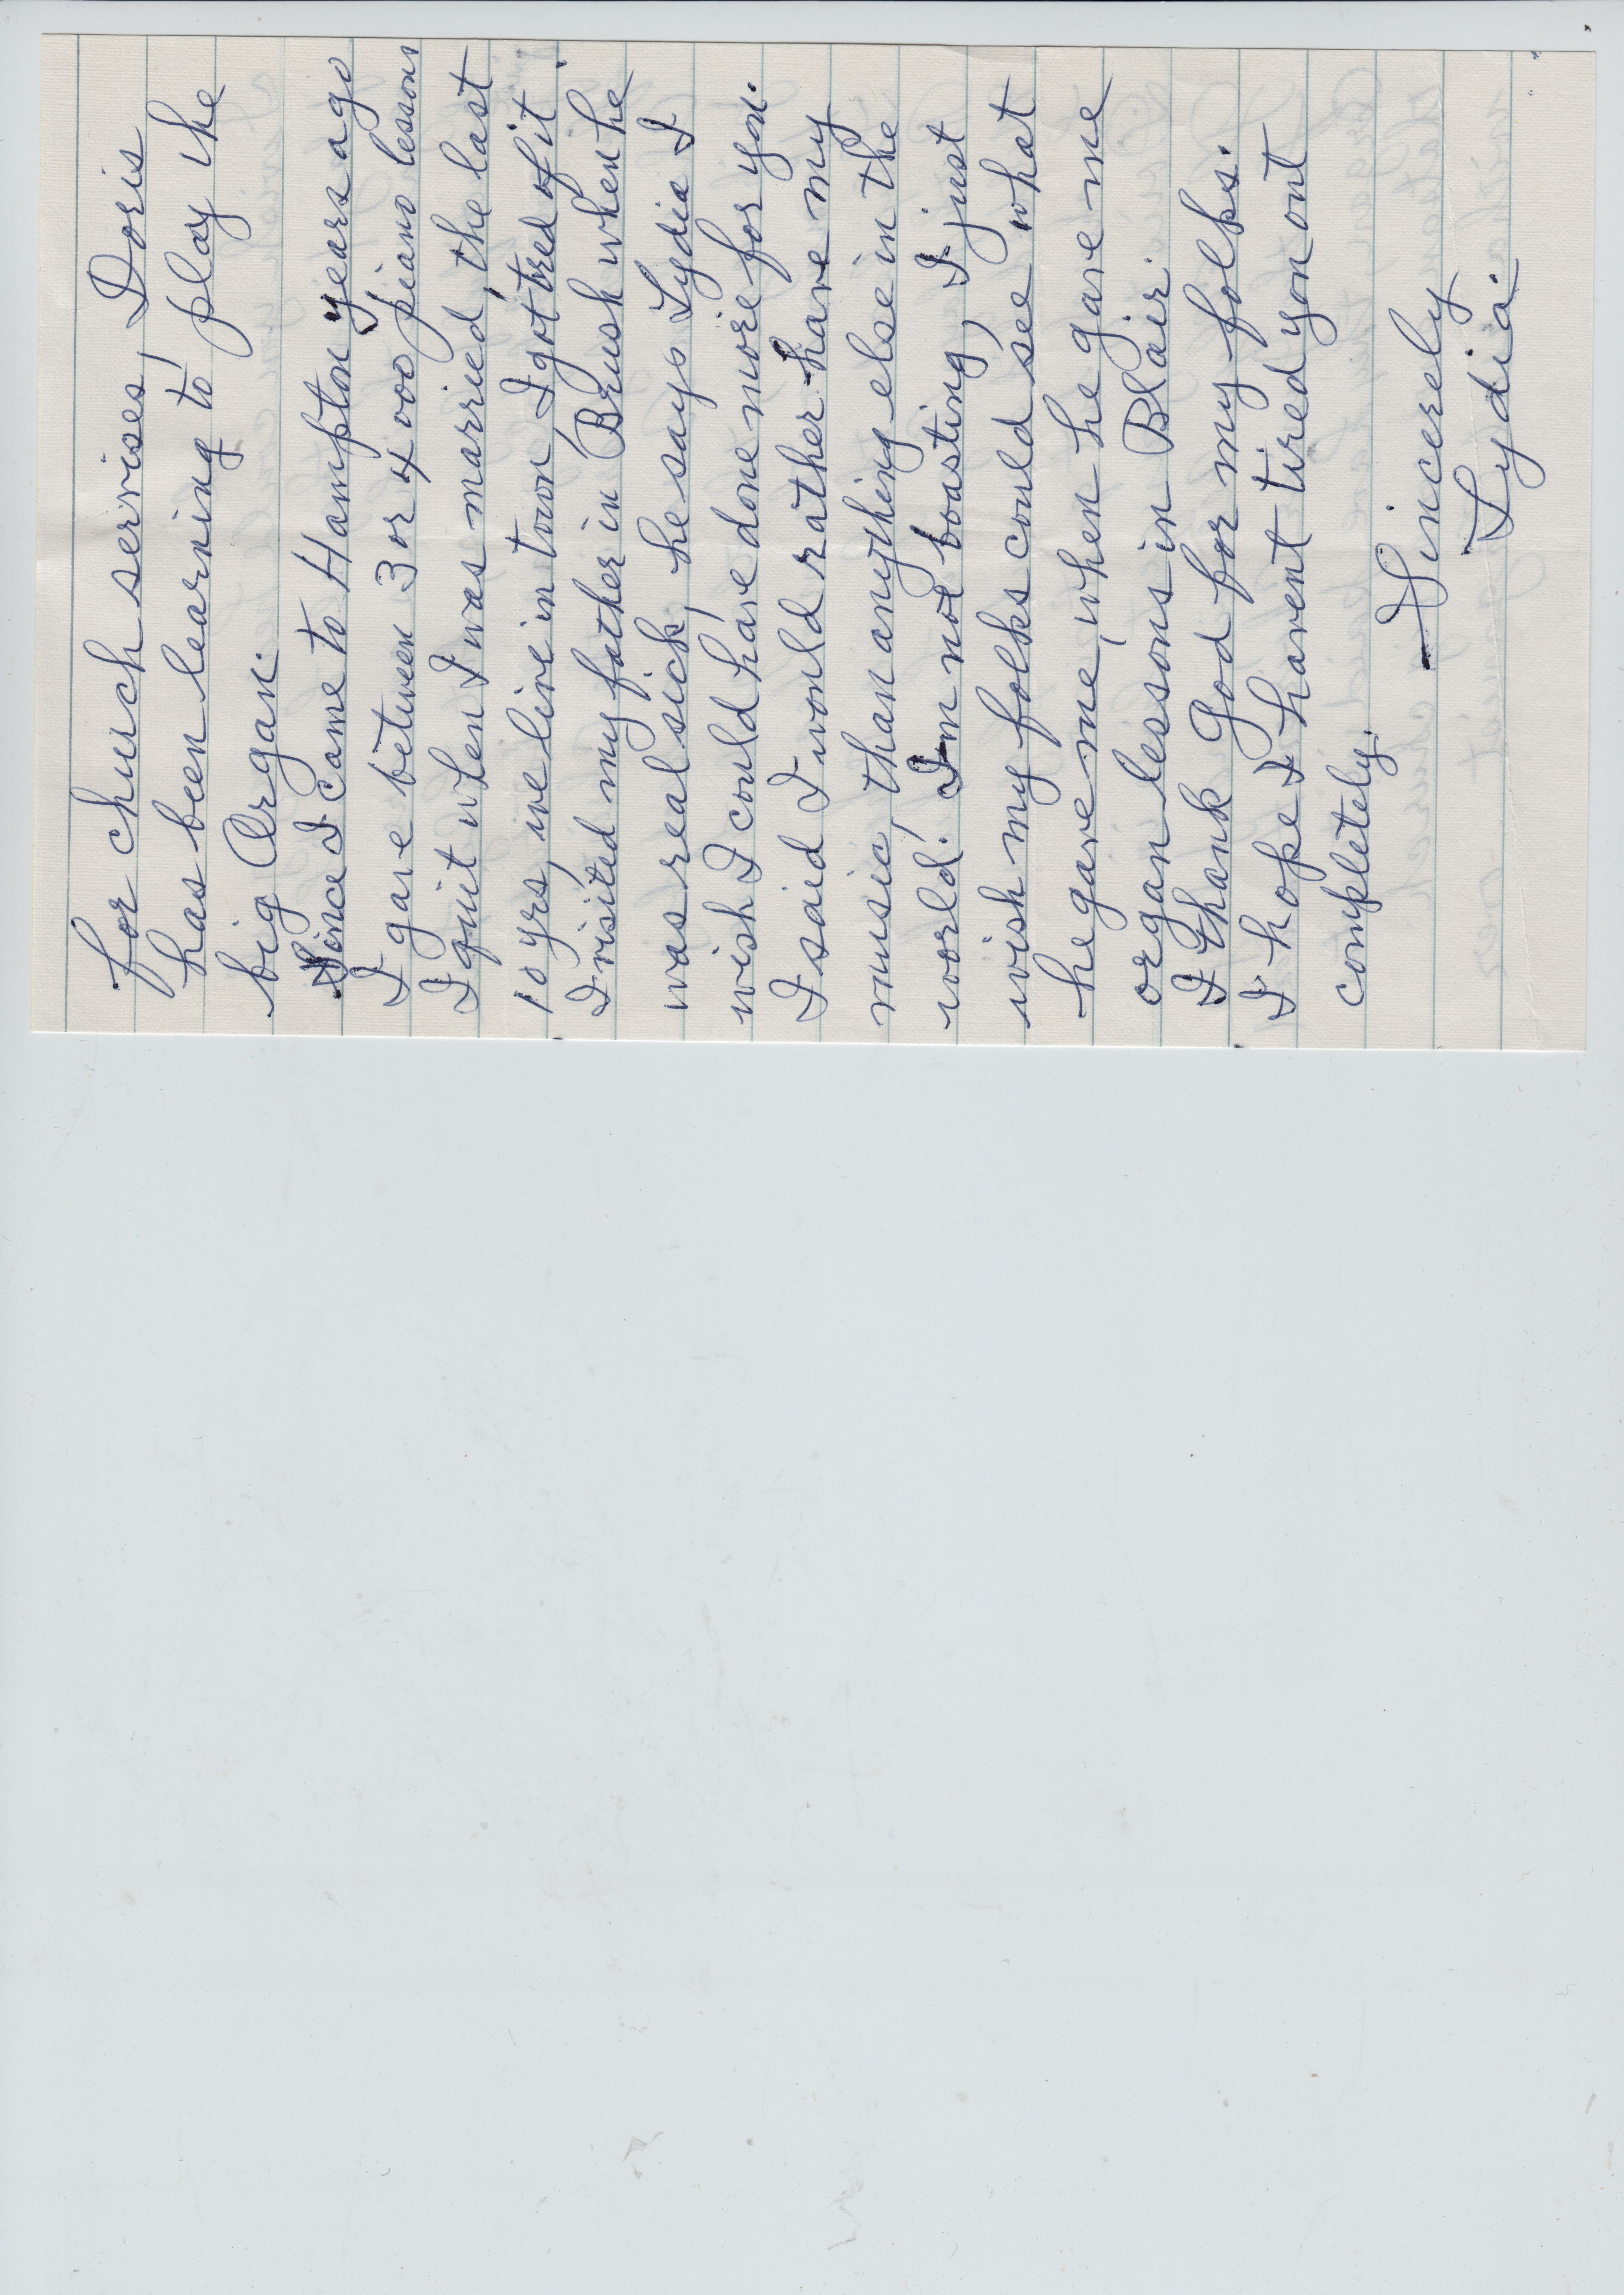 for church servises, Doris
has been learning to play the
big Organ.
Since I came to Hampton years ago
I gave between 3 or 4000 piano lessons
I quit when I was married, the last
10 yrs, we live in town, I got tred of it.
I visited my father in Brush when he
was real sick, he says Lydia I
wish I could have done more for you.
I said I would rather have my
music, than anything else in the
world. I'm not boasting, I just
wish my folks could see what
he gave me, when he gave me
organ lessons in Blair.
I thank God for my folks.
I hope I havent tired you out
completely.
Sincerely
Lydia.